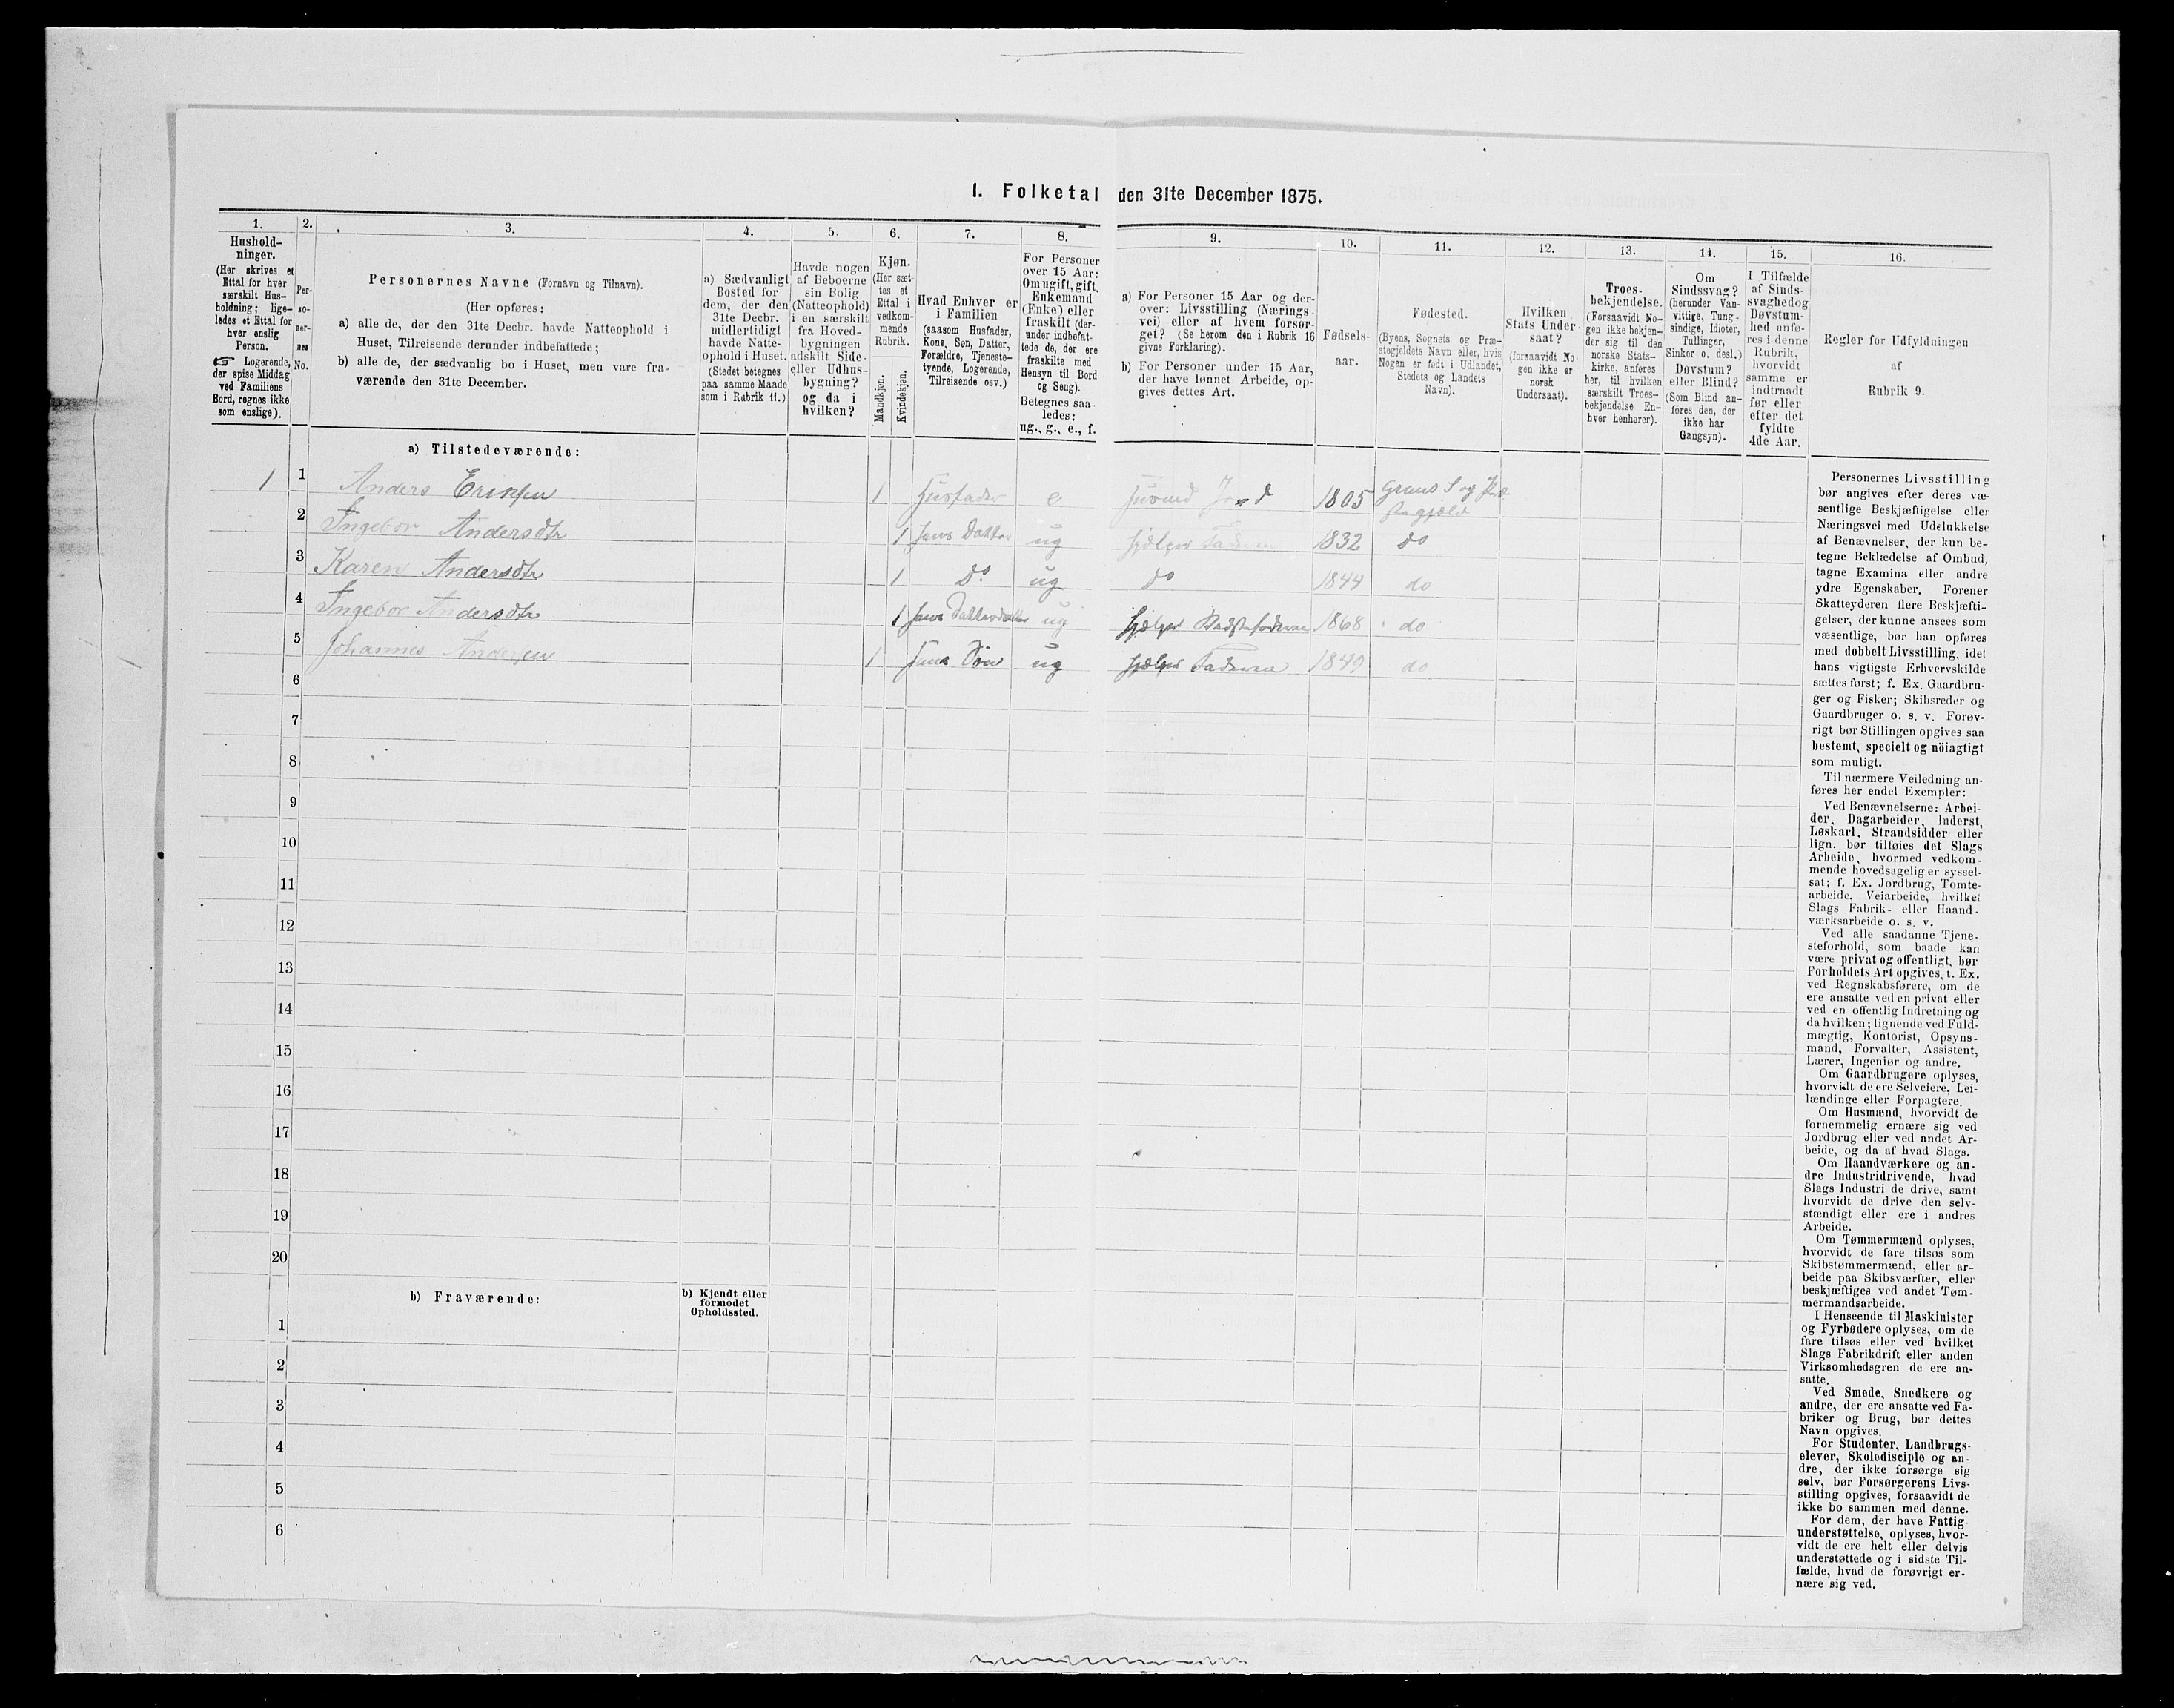 I. Folketal den 31te December 1875.
1.
Hushold-
ninger.
(Her skrives et
Ettal for hver
særskilt Hus-
holdning; lige-
ledes et Ettal for
hver enslig
Person.
☞ Logerende,
der spise Middag
ved Familiens
Bord, regnes ikke
som enslige).
2.
Per-
so-
ner-
nes
No.
3.
Personernes Navne (Fornavn og Tilnavn).
(Her opføres:
a) alle de, der den 31te Decbr. havde Natteophold i
Huset, Tilreisende derunder indbefattede;
b) alle de, der sædvanlig bo i Huset, men vare fra-
værende den 31te December.
4.
a) Sædvanligt
Bosted for
dem, der den
31te Decbr.
midlertidigt
havde Natte-
ophold i Huset.
(Stedet betegnes
paa samme Maade
som i Rubrik 11.)
5.
Havde nogen
af Beboerne
sin Bolig
(Natteophold)
i en særskilt
fra Hoved-
bygningen
adskilt Side-
eller Udhus-
bygning?
og da i
hvilken?
6.
Kjøn.
(Her sæt-
tes et
Ettal i
vedkom-
mende
Rubrik.
Mandkjøn.
Kvindekjøn.
7.
Hvad Enhver er
i Familien
(saasom Husfader,
Kone, Søn, Datter,
Forældre, Tjeneste-
tyende, Logerende,
Tilreisende osv.)
8.
For Personer
over 15 Aar:
Om ugift, gift,
Enkemand
(Enke) eller
fraskilt (der-
under indbefat-
tede de, der ere
fraskilte med
Hensyn til Bord
og Seng).
Betegnes saa-
ledes:
ug., g., e., f.
9.
a) For Personer 15 Aar og der-
over: Livsstilling (Nærings-
vei) eller af hvem forsør-
get? (Se herom den i Rubrik 16
givne Forklaring).
b) For Personer under 15 Aar,
der have lønnet Arbeide, op-
gives dettes Art.
10.
Fødsels-
aar.
11.
Fødested.
(Byens, Sognets og Præ-
stegjeldets Navn eller, hvis
Nogen er født i Udlandet,
Stedets og Landets
Navn).
12.
Hvilken
Stats Under-
saat?
(forsaavidt No-
gen ikke er
norsk
Undersaat).
13.
Troes-
bekjendelse.
(Forsaavidt No-
gen ikke bekjen-
der sig til den
norske Stats-
kirke, anføres
her, til hvilken
særskilt Troes-
bekjendelse En-
hver henhører).
14.
Om
Sindssvag?
(herunder Van-
vittige, Tung-
sindige, Idioter,
Tullinger,
Sinker o. desl.)
Døvstum?
eller Blind?
(Som Blind an-
føres den, der
ikke har
Gangsyn).
15.
I Tilfælde
af Sinds-
svaghedog
Døvstum-
hed anfø-
res i denne
Rubrik,
hvorvidt
samme er
indtraadt
før eller
efter det
fyldte
4de Aar.
16.
Regler for Udfyldningen
af
Rubrik 9.
a) Tilstedeværende:
1 1 Anders Eriksen 1 Husfader e 1805
2 Ingebor Andersdtr 1 hans Datter ug hjelper 1832 do
3 Karen Andersdtr 1 Do ug do 1844 do
4 Ingebor Andersdtr 1 hans Datterdatter ug hjelper Bedstefaderen 1868 do
5 Johannes Andersen 1 hans Søn ug hjelper Faderen 1849 do
6
7
8
9
10
11
12
13
14
15
16
17
18
19
20
b) Fraværende:
b) Kjendt eller
formodet
Opholdssted.
1
2
3
4
5
6
Personernes Livsstilling
bør angives efter deres væ-
sentlige Beskjæftigelse eller
Næringsvei med Udelukkelse
af Benævnelser, der kun be-
tegne Beklædelse af Ombud,
tagne Examina eller andre
ydre Egenskaber. Forener
Skatteyderen flere Beskjæfti-
gelser, der kunne ansees som
væsentlige, bør han opføres
med dobbelt Livsstilling, idet
hans vigtigste Erhvervskilde
sættes først; f. Ex. Gaardbru-
ger og Fisker; Skibsreder og
Gaardbruger o. s. v. Forøv-
rigt bør Stillingen opgives saa
bestemt, specielt og nöiagtigt
som muligt.
Til nærmere Veiledning an-
føres her endel Exempler:
Ved Benævnelserne: Arbei-
der, Dagarbeider, Inderst,
Løskarl, Strandsidder eller
lign. bør tilføies det Slags
Arbeide, hvormed vedkom-
mende hovedsagelig er syssel-
sat; f. Ex. Jordbrug, Tomte-
arbeide, Veiarbeide, hvilket
Slags Fabrik- eller Haand-
værksarbeide o. s. v.
Ved alle saadanne Tjene-
steforhold, som baade kan
være privat og offentligt, bør
Forholdets Art opgives, t. Ex.
ved Regnskabsførere, om de
ere ansatte ved en privat eller
ved en offentlig Indretning og
da hvilken; lignende ved Fuld-
mægtig, Kontorist, Opsyns-
mand, Forvalter, Assistent,
Lærer, Ingeniør og andre.
Om Gaardbrugere oplyses,
hvorvidt de ere Selveiere, Lei-
lændinge eller Forpagtere.
Om Husmænd, hvorvidt de
fornemmelig ernære sig ved
Jordbrug eller ved andet Ar-
beide, og da af hvad Slags.
Om Haandværkere og an-
dre Industridrivende, hvad
Slags Industri de drive, samt
hvorvidt de drive den selv-
stændigt eller ere i andres
Arbeide.
Om Tømmermænd oplyses,
hvorvidt de fare tilsøs som
Skibstømmermænd, eller ar-
beide paa Skibsværfter, eller
beskjæftiges ved andet Tøm-
mermandsarbeide.
I Henseende til Maskinister
og Fyrbødere oplyses, om de
fare tilsøs eller ved hvilket
Slags Fabrikdrift eller anden
Virksomhedsgren de ere an-
satte.
Ved Smede, Snedkere og
andre, der ere ansatte ved Fa-
briker og Brug, bør dettes
Navn opgives.
For Studenter, Landbrugs-
elever, Skoledisciple og an-
dre, der ikke forsørge sig
selv, bør Forsørgerens Livs-
stilling opgives, forsaavidt de
ikke bo sammen med denne.
For dem, der have Fattig-
understøttelse, oplyses, hvor-
vidt de ere helt eller delvis
understøttede og i sidste Til-
fælde, hvad de forøvrigt er-
nære sig ved.